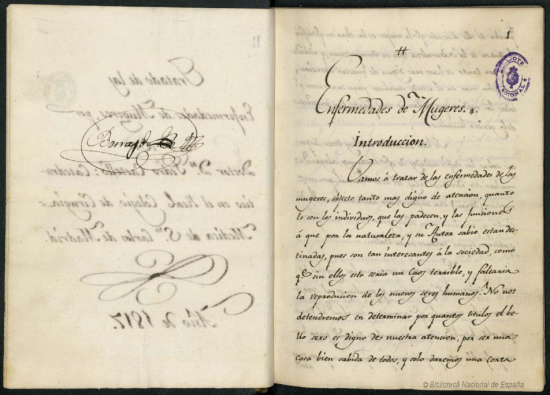 1
#
Enfermedades de Mugeres.
Introduccion.
Vamos á tratar de las enfermedades de las
mugeres, objeto tanto mas digno de atencion, quanto
lo son los individuos, que las padecen, y las funciones
á que por la naturaleza, y su Autor sabio estan des-
tinadas, pues son tan interesantes á la sociedad, como
qe. sin ellas esto seria un Caos terrible, y faltaria
la reproduccion de los nuevos seres humanos. No nos
detendremos en determinar por quantos titulos el be-
llo sexo es digno de nuestra atencion, por ser una
cosa bien sabida de todos, y solo daremos una corta
Tratado de las
Enfermedades de Mugeres por
Doctor Dn. Pedro Castelló: Catedra-
tico en el Real Colegio de Cirugia
Medica de Sn. Carlos de Madrid
Año de 1817.
© Biblioteca Nacional de España